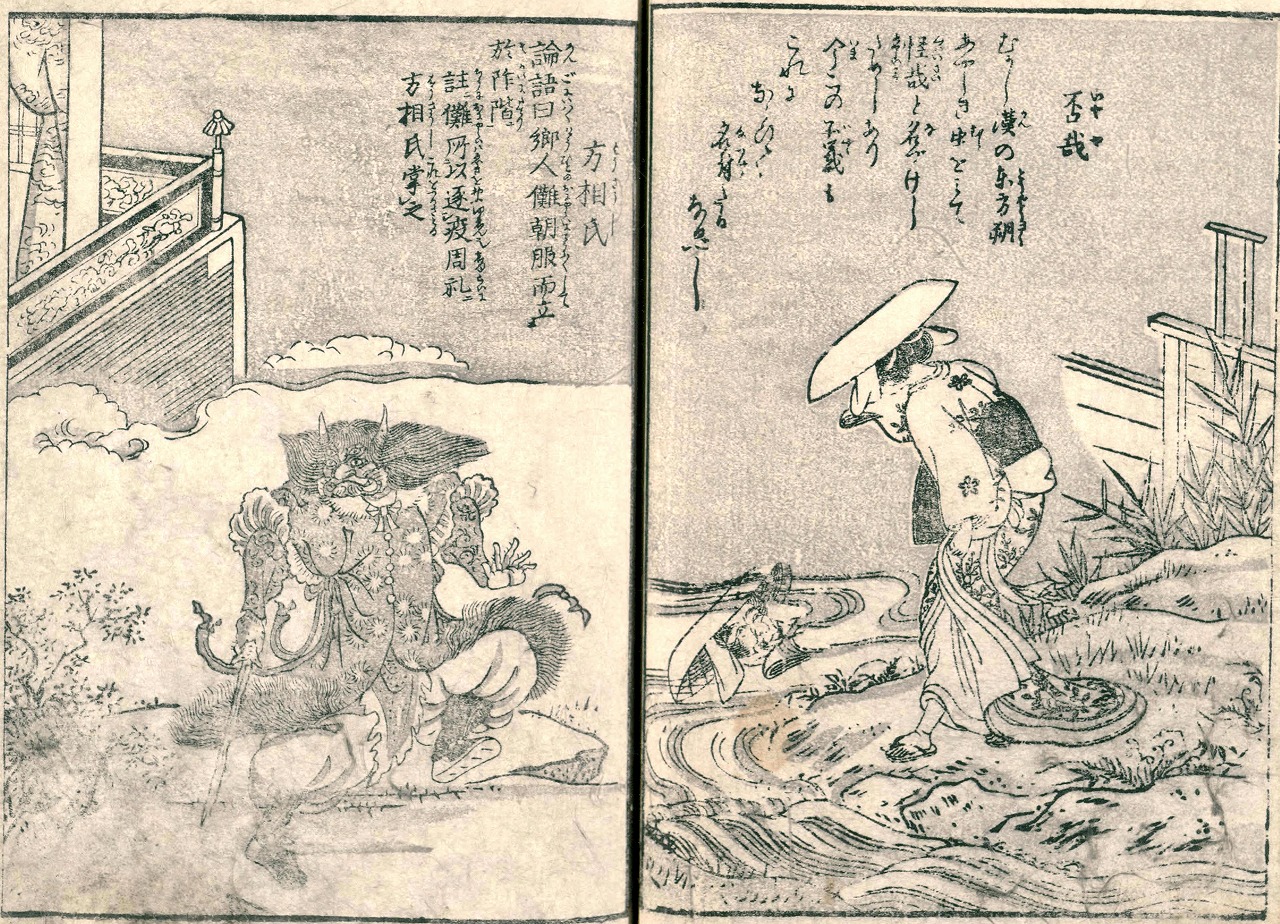 否哉
むかし漢の東方朔
あやしき虫をみて
怪哉と名づけし
ためしあり
今この否哉も
これに
ならひて
名付たる
なるべし
方相氏
論語曰郷人儺朝服而立
於阼階
註儺所以逐疫周礼ニ
方相氏掌之